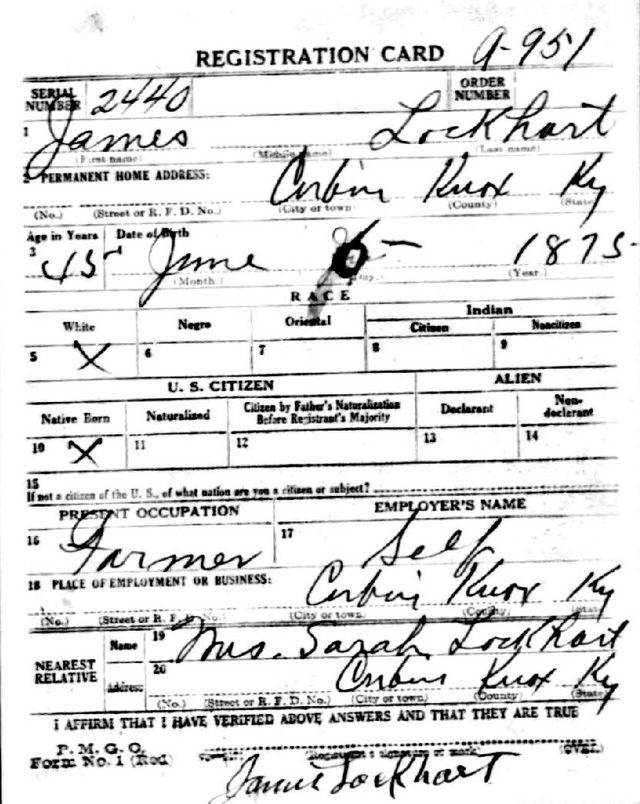 REGISTRATION CARD A-951
SERIAL NUMBER 2440 ORDER NUMBER
1 James Lockhart
(First name) (Middle name) (Last name)
2 PERMANENT HOME ADDRESS: Corbin Knox Ky
(No.) (Street or R. F. D. No.) (City or town) (County) (State)
Age in Years Date of Birth
3 45 June 6 - 1873
(Month.) (Day.) (Year.)
RACE
White Negro Oriental Indian
Citizen Noncitizen
5 X 6 7 8 9
U. S. CITIZEN ALIEN
Native Born Naturalized Citizen by Father's Naturalization Before Registrant's Majority Declarant Non-declarant
10 X 11 12 13 14
15
If not a citizen of the U. S., of what nation are you a citizen or subject?
PRESENT OCCUPATION EMPLOYER'S NAME
16 Farmer 17 Self
18 PLACE OF EMPLOYMENT OR BUSINESS: Corbin Knox Ky
(No.) (Street or R. F. D. No.) (City or town) (County) (State)
NEAREST RELATIVE Name 19 Mrs. Sarah Lockhart
Address 20 Corbin Knox Ky
(No.) (Street or R. F. D. No.) (City or town) (County) (State)
I AFFIRM THAT I HAVE VERIFIED ABOVE ANSWERS AND THAT THEY ARE TRUE
P. M. G. O.
Form No. 1 (Red) (Registrant's signature or mark) (OVER)
Lockhart